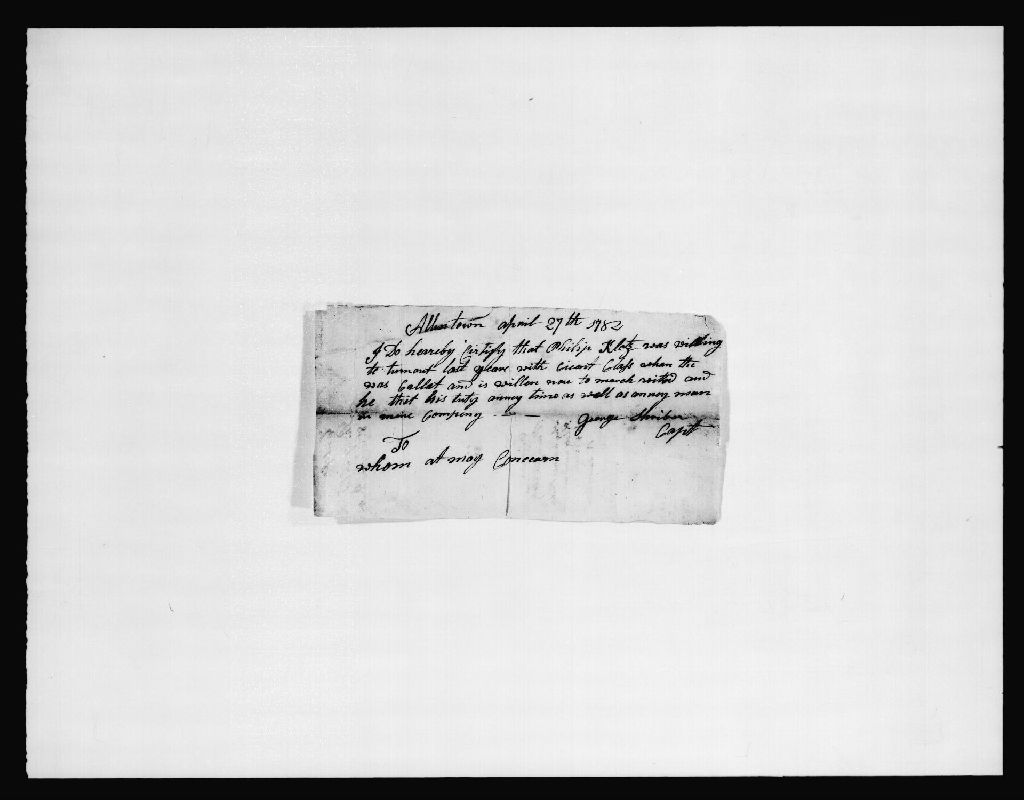 Allentown april 27th 1782
I Do hereeby Certify that Philip Klotz was willing
to turnout last year with Class when the
was Callet and is willen now to march with and
he that his tuty anney time as well as anney man
in mine Company - - -
George Shriber
Capt
To
whom at may Concearn